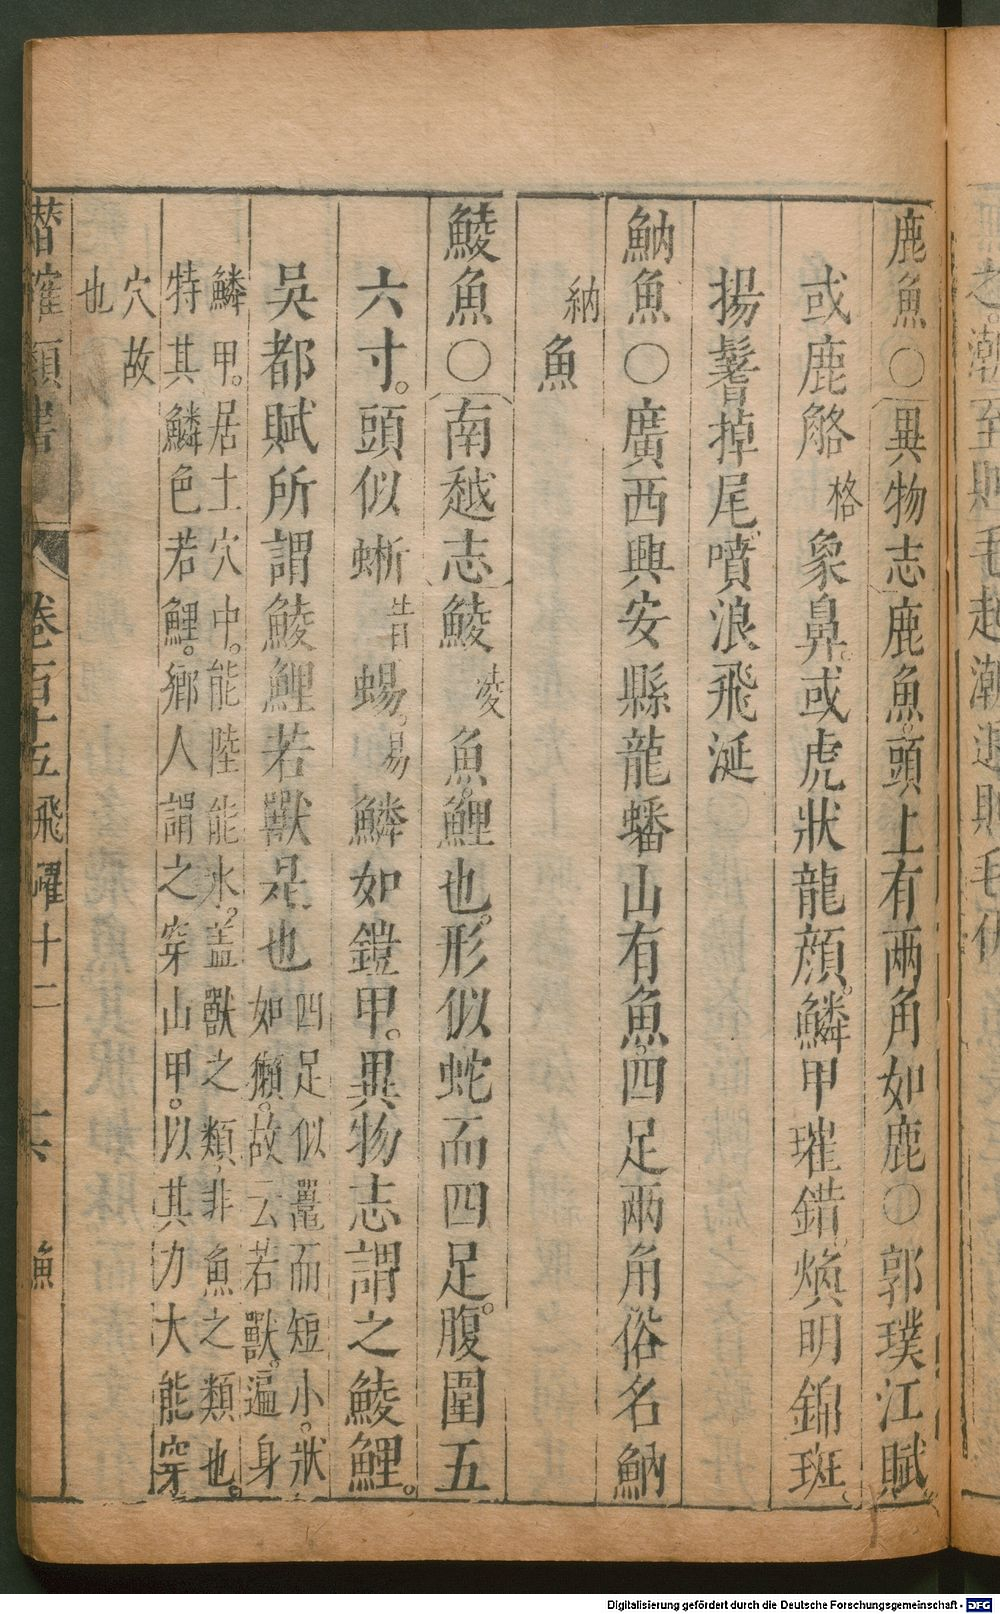 鹿魚○異物志鹿魚。頭上有兩角如鹿○郭璞江賦。
或鹿觡格象鼻。或虎狀龍顔。鱗甲璀錯。煥明錦班。
揚鬐掉尾。噴浪飛涎
魶魚○廣西興安縣龍蟠山有魚。四足兩角俗名魶
納魚
鯪魚○南越志鯪凌魚。鯉也。形似蛇而四足。腹圍五
六寸。頭似蜥昔蜴。易鱗如鎧甲。異物志謂之鯪鯉。
吳都賦所謂鯪鯉若獸是也四足似鼍而短小。狀
如獺。故云若獸。遍身
鱗甲。居土穴中。能陸能水。盖獸之類，非魚之類也。
特其鱗色若鯉。鄉人謂之穿山甲。以其力大能穿
穴故
也
潛確類書
卷百十五飛躍十二
魚
Digitalisierung gefördert durch die Deutsche Forschungsgemeinschaft - DFG